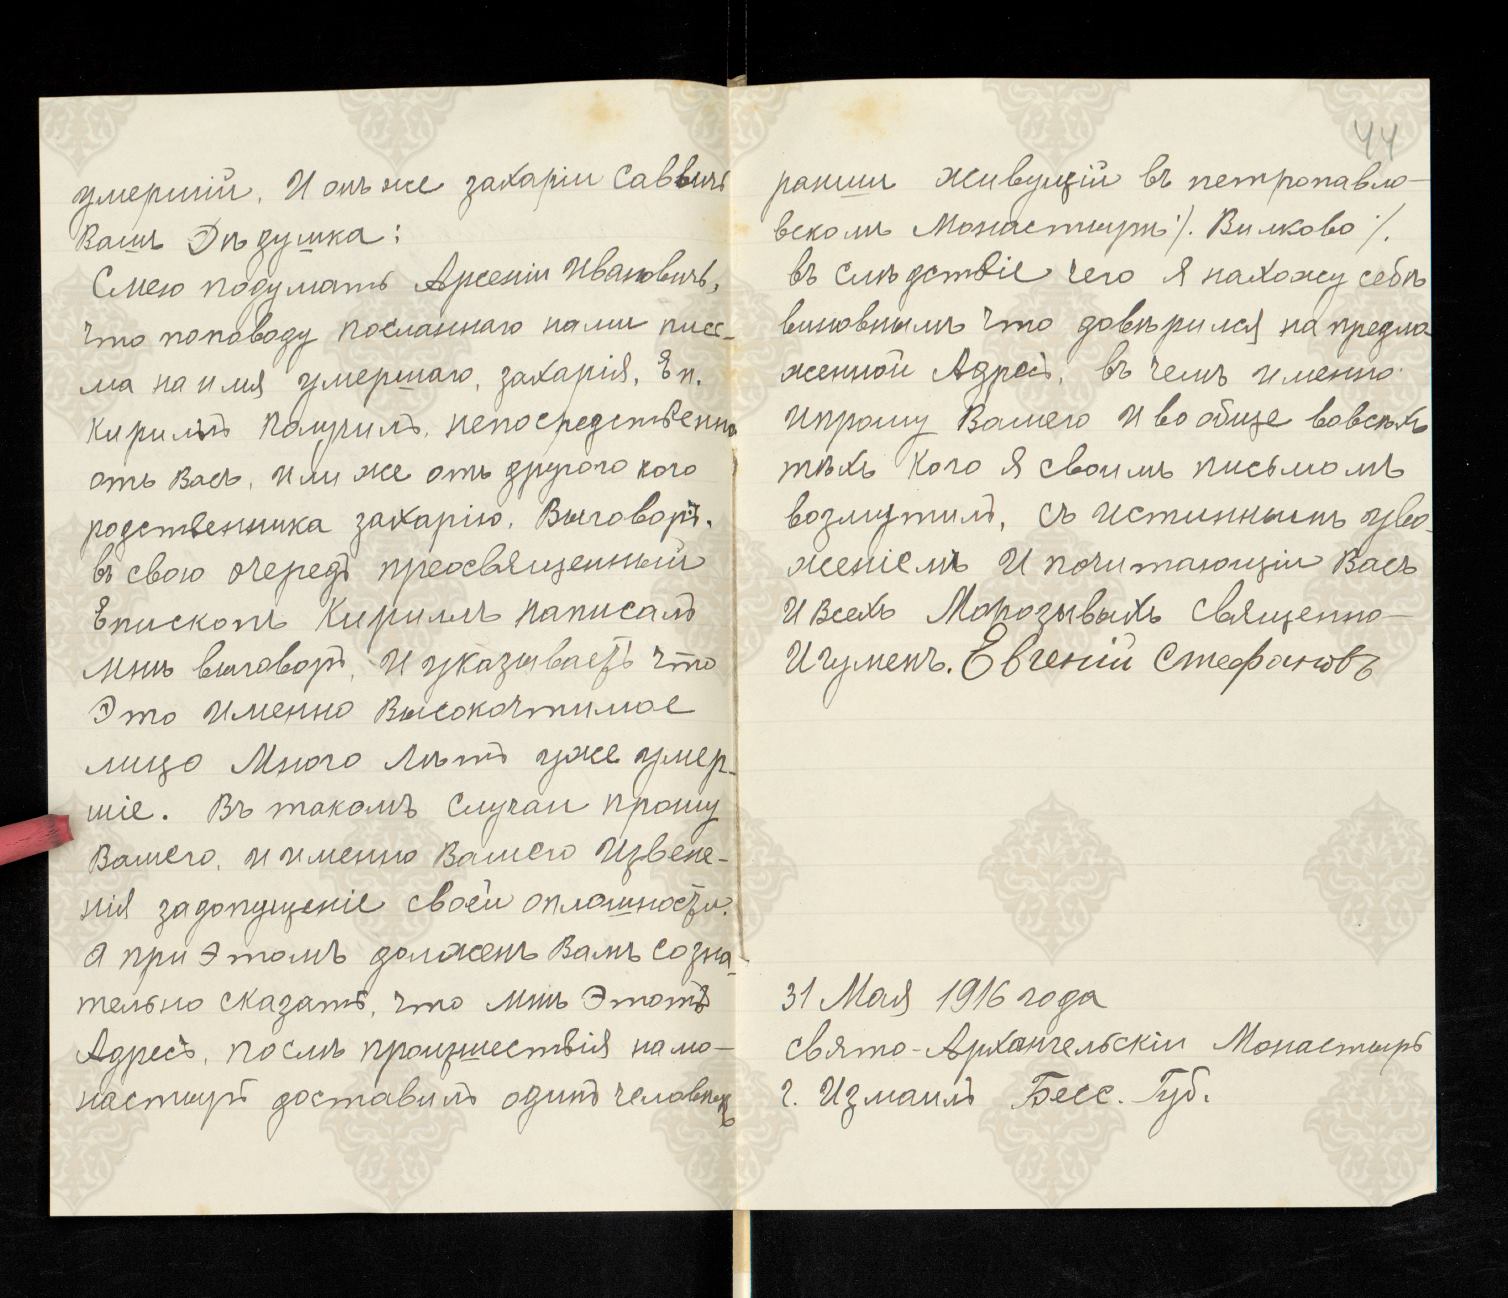 умершій, И онъ же захаріи Саввичъ
Вашъ Дѣдушка:
Смею подумать Арсеніи Ивановичъ,
что поповоду посланнаго нами пис-
ма на имя умершаго, захарія, Еп.
Кирилъ Получилъ, непосредственно
отъ Васъ, или же отъ другого кого
родственника захарію, Выговоръ.
въ свою очередь преосвященный
Епископъ Кирилъ написалъ
мнѣ выговоръ, И указываетъ что
Это именно Высокочтимое
лицо Много Лѣтъ уже умер-
шіе. Въ такомъ Случаи прошу
Вашего, и именно Вашего Извене-
нія задопущеніе своей оплошности.
А при Этомъ долженъ Вамъ созна-
тельно сказать, что мнѣ Этотъ
Адресъ, послѣ проишествія намо-
настырь доставилъ одинъ человѣкъ
44
ранши живущій въ петропавло-
вскомъ Монастырѣ ·/. Вилково ·/.
въ Слѣдствіе чего я нахожу себѣ
виновнымъ что довѣрился на предла
женной Адресъ, въ чемъ именно
ипрошу Вашего И вообще вовсѣхъ
тѣхъ Кого я своимъ письмомъ
возмутилъ, съ истиннымъ ува-
женіемъ И почитающіи Васъ
И Всехъ Морозывыхъ Священно-
Игуменъ. Евгеній Стефановъ
31 Мая 1916 года
свято-Архангельскіи Монастырь
г. Измаилъ Бесс. Губ.